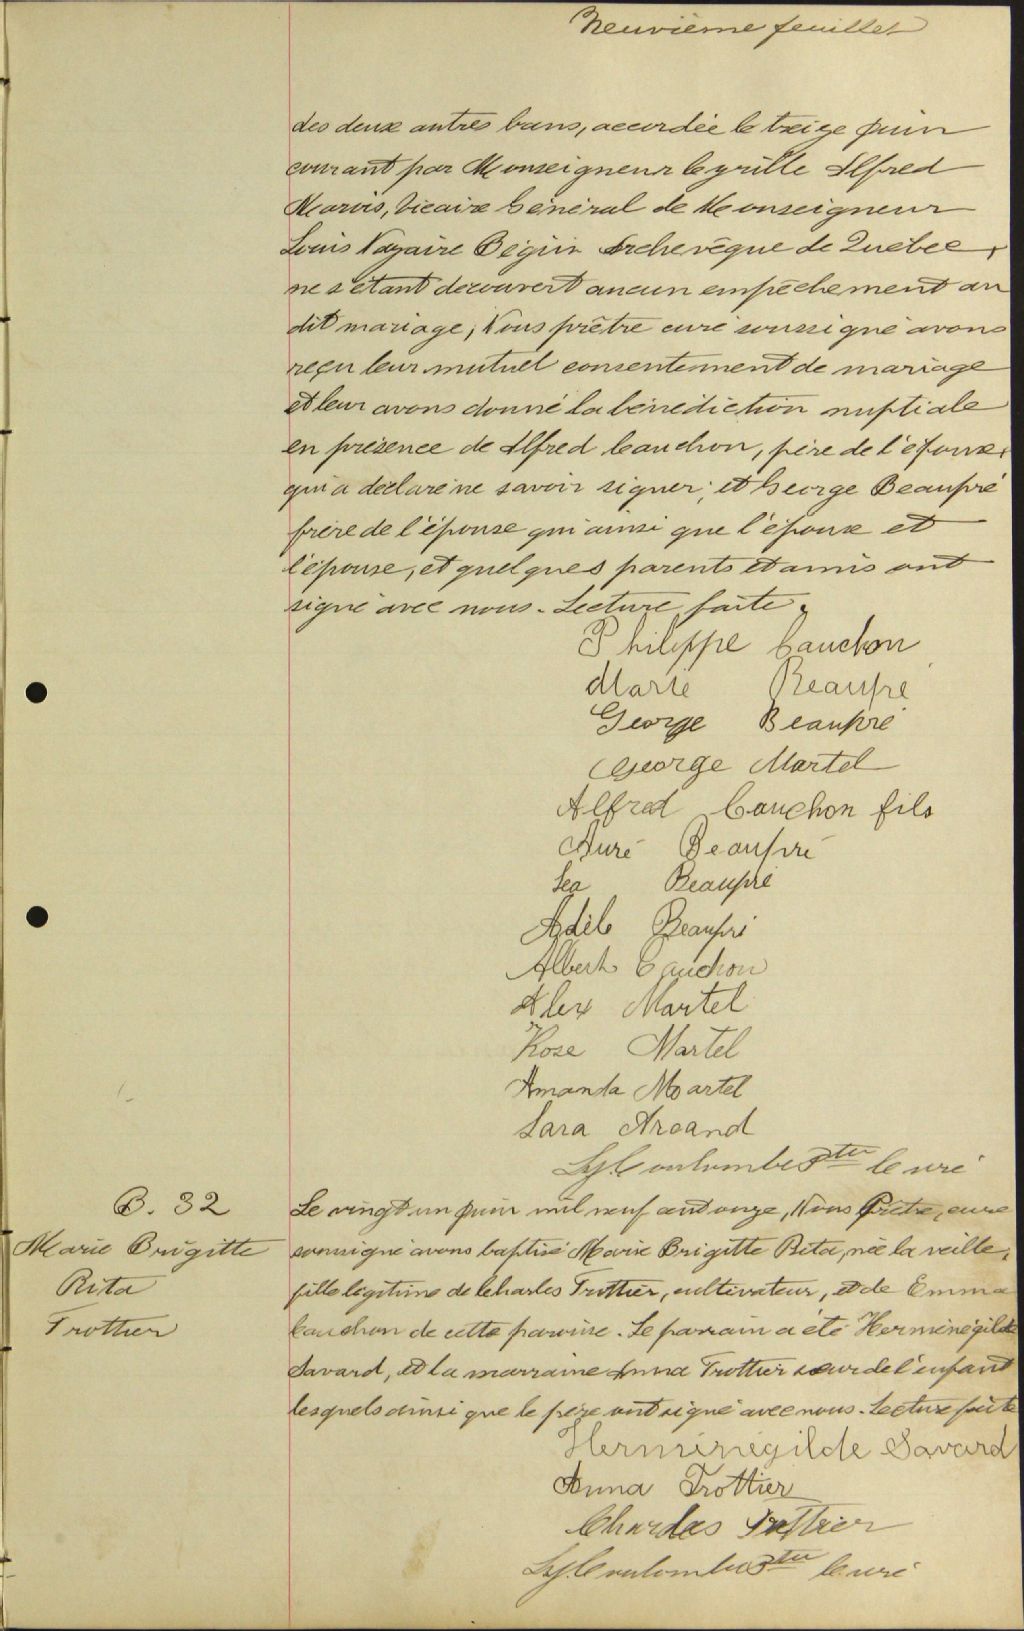 Neuvième feuillet
des deux autres bans, accordée le treize juin
courant par Monseigneur Cyrille Alfred
Marois, Vicaire Général de Monseigneur
Louis Nazaire Bégin Archevêque de Québec,
ne s'étant découvert aucun empêchement au
dit mariage; Nous prêtre curé soussigné avons
reçu leur mutuel consentement de mariage
et leur avons donné la bénédiction nuptiale
en présence de Alfred Cauchon, père de l'époux,
qui a déclaré ne savoir signer; et George Beaupré
frère de l'épouse qui ainsi que l'époux et
l'épouse, et quelques parents et amis ont
signé avec nous. Lecture faite.
Philippe Cauchon
Marie Beaupré
George Beaupré
George Martel
Alfred Cauchon fils
Auré Beaupré
Lea Beaupré
Adèle Beaupré
Albert Cauchon
Alex Martel
Rose Martel
Amanda Martel
Sara Arcand
Coulombe Ptre Curé
B. 32
Marie Brigitte
Rita
Trottier
Le vingt un juin mil neuf cent onze, Nous Prêtre, curé
soussigné avons baptisé Marie Brigitte Rita, née la veille,
fille légitime de Charles Trottier, cultivateur, et de Emma
Cauchon de cette paroisse. Le parrain a été Herménégilde
Savard, et la marraine Anna Trottier sœur de l'enfant
lesquels ainsi que le père ont signé avec nous. Lecture faite
Herménégilde Savard
Anna Trottier
Charles Trottier
Coulombe Ptre Curé